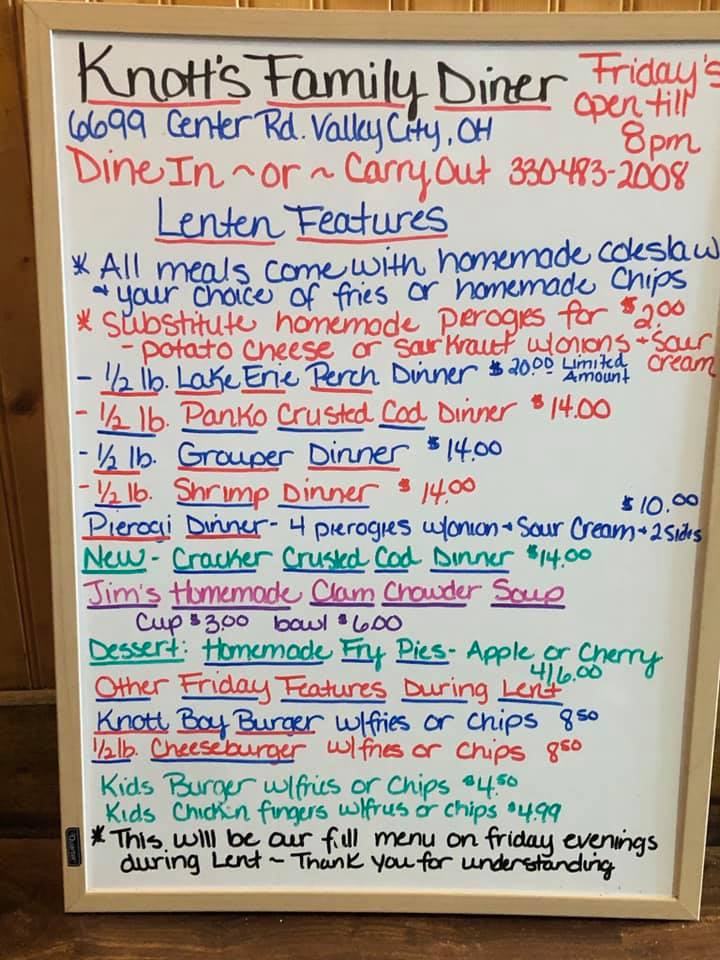 Knott's Family Diner
Friday's
open till
8pm
6699 Center Rd. Valley City, OH
Dine In ~ or ~ Carry Out 330-483-2008
Lenten Features
* All meals come with homemade coleslaw
+ your choice of fries or homemade chips
* Substitute homemade perogies for $2.00
- potato cheese or saurkraut w/onions + sour cream
- 1/2 lb. Lake Erie Perch Dinner $20.00 Limited Amount
- 1/2 lb. Panko Crusted Cod Dinner $14.00
- 1/2 lb. Grouper Dinner $14.00
- 1/2 lb. Shrimp Dinner $14.00
$10.00
Pierogi Dinner - 4 pierogies w/onion + Sour Cream + 2 sides
New - Cracker Crusted Cod Dinner $14.00
Jim's Homemade Clam Chowder Soup
Cup $3.00 bowl $6.00
Dessert: Homemade Fry Pies - Apple or Cherry
4/6.00
Other Friday Features During Lent
Knott Boy Burger w/fries or chips 8.50
1/2 lb. Cheeseburger w/fries or chips 8.50
Kids Burger w/fries or chips $4.50
Kids Chicken fingers w/frus or chips $4.99
* This will be our full menu on friday evenings
during Lent ~ Thank you for understanding
Quartet